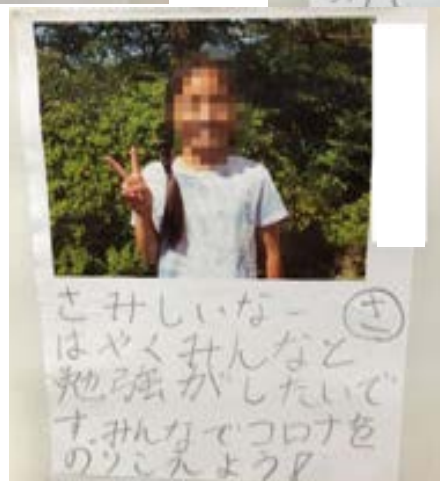 さみしいなー
さ
はやくみんなと
勉強がしたいで
す。みんなでコロナを
のりこえよう!